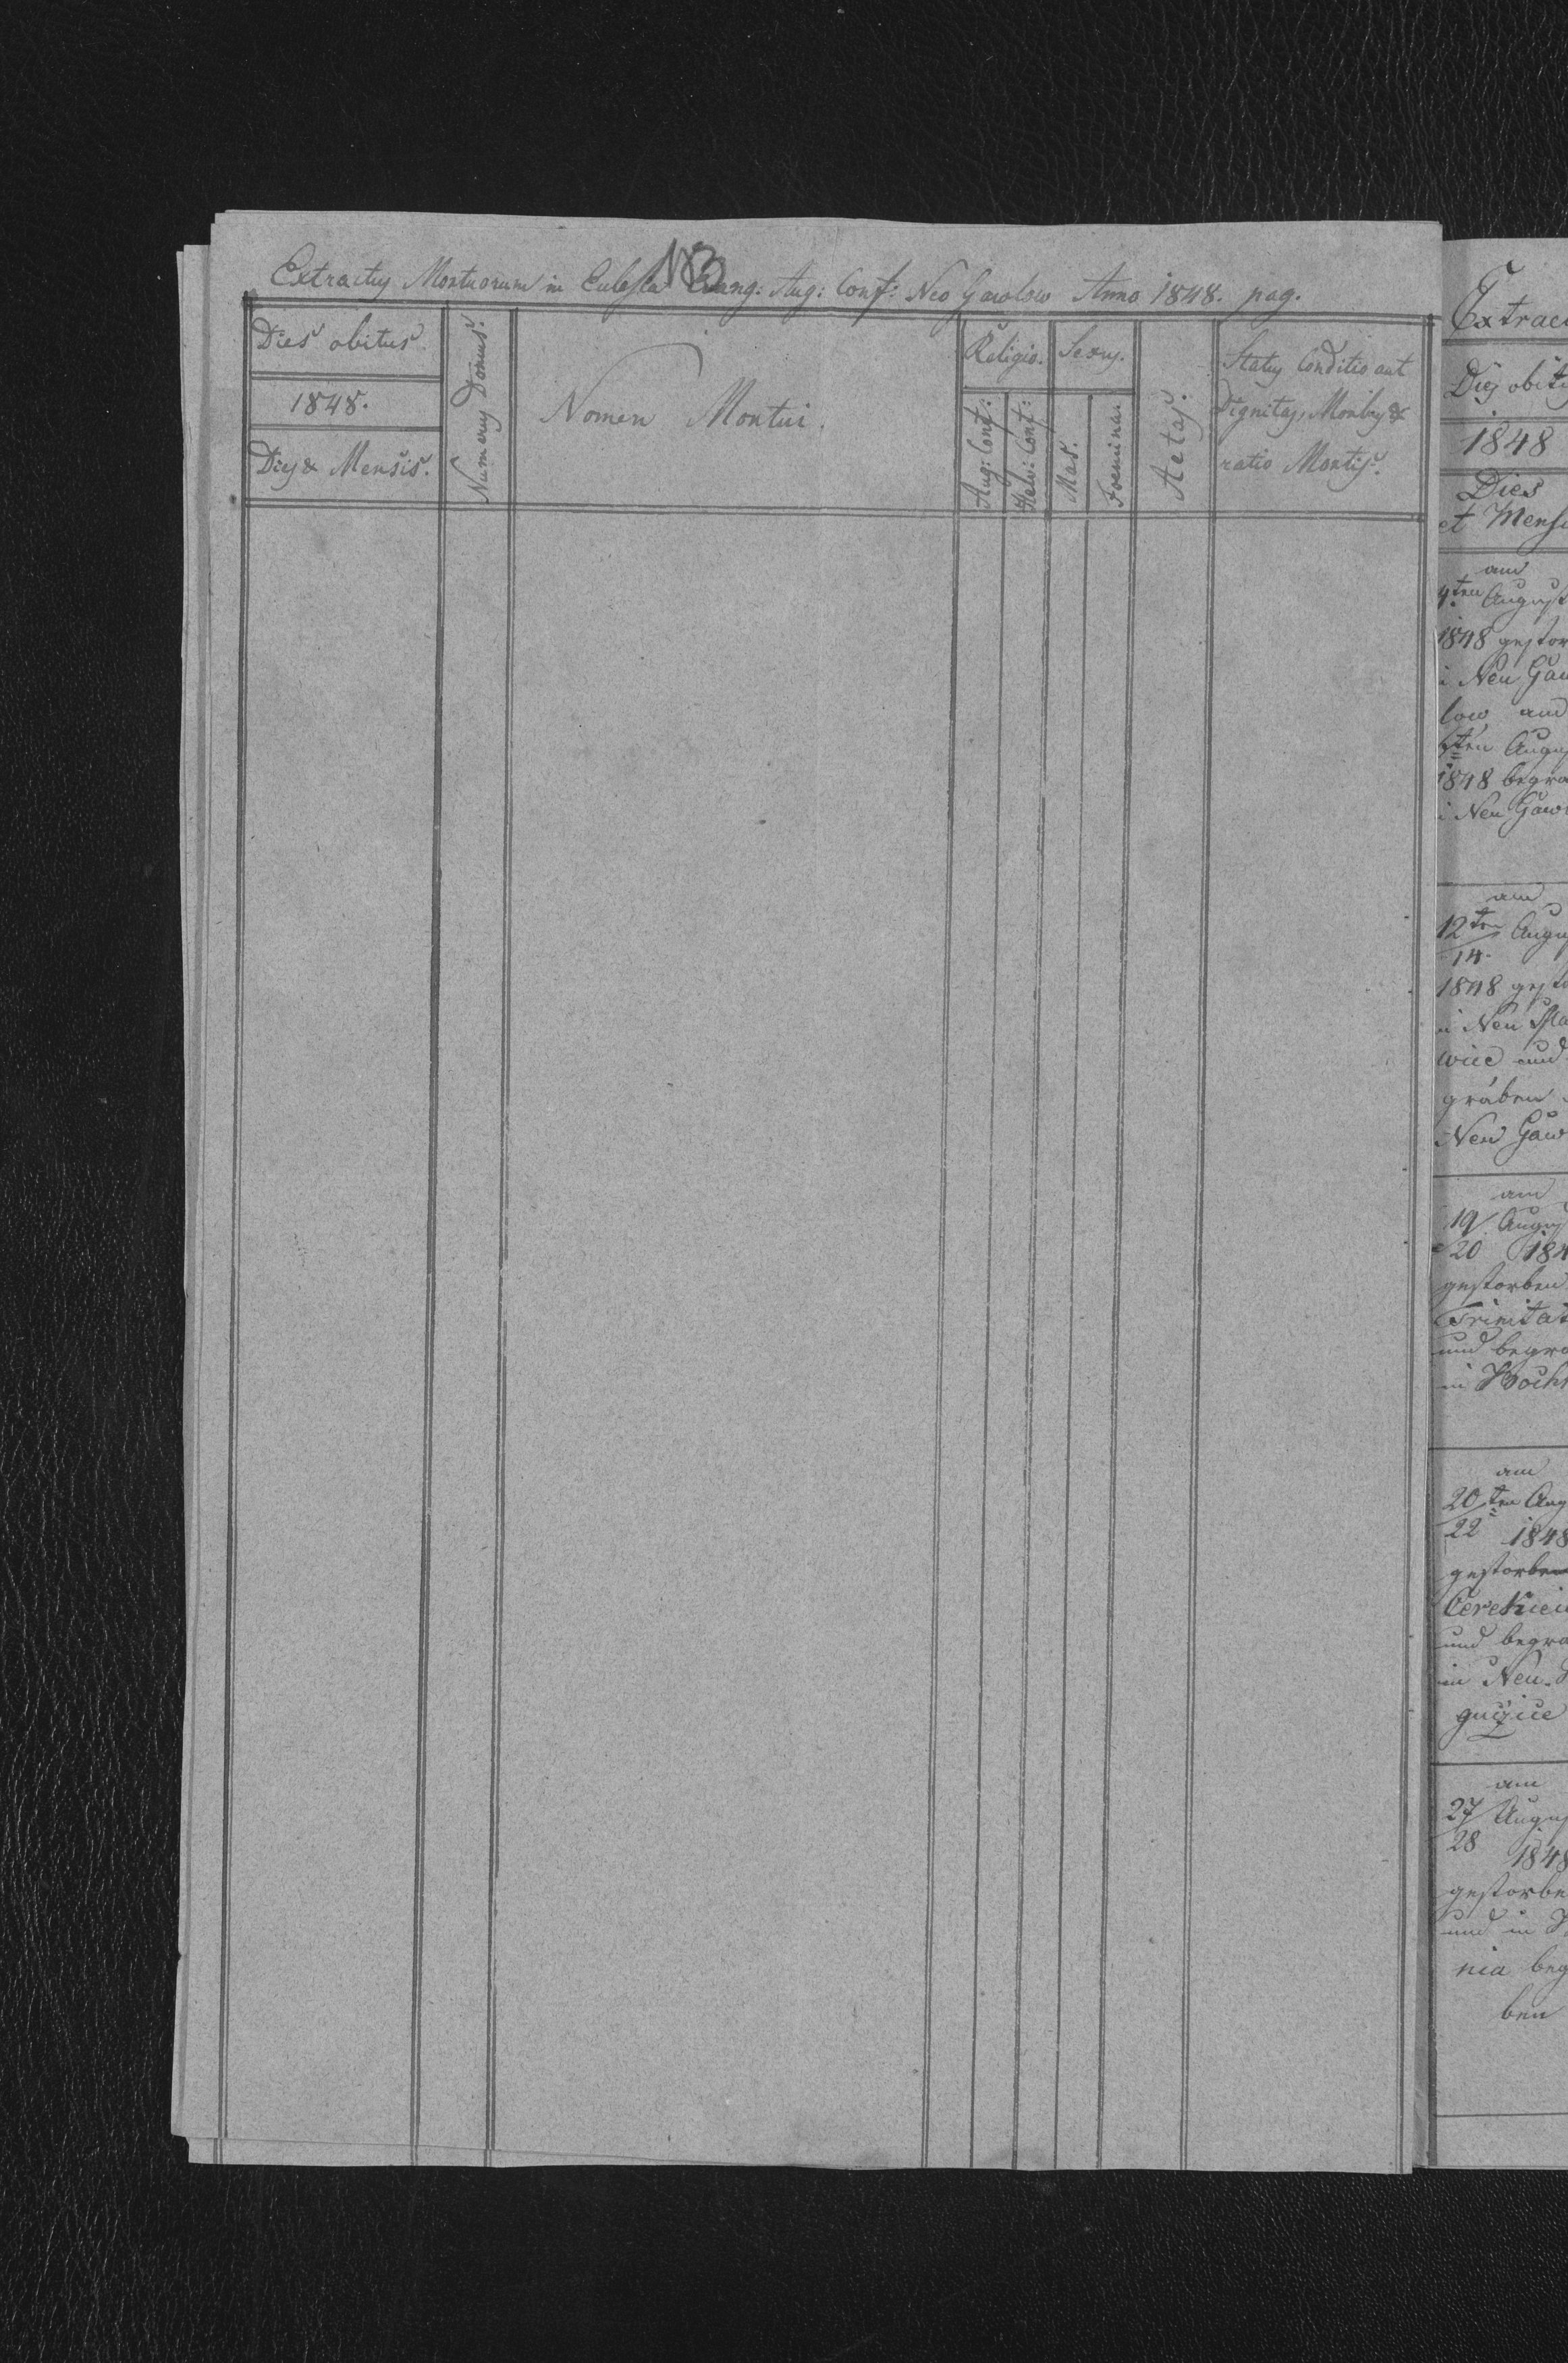 Extractus Mortuorum in Eclesia Evang: Aug: Conf: Neo Gawolow Anno 1848. pag.
Dies obitus
1848.
Dies & Mensis.
Numerus Domus.
Nomen Mortui.
Religio.
Aug: Conf:
Helv: Conf:
Sexus.
Mas.
Foemina.
Aetas.
Status Conditio aut
Dignitas, Morbus &
ratio Mortis.
Extrac
Dies obitu
1848
Dies
et Mensi
am
4ten August
1848 gestor
i Neu Gaw
low und
6ten Augus
1848 begra
i Neu Gaw
am
12ten Augu
14.
1848 gesto
i Neu
wice und
graben
Neu Gaw
am
19/ Augus
20 184
gestorben
Trinitat
und begra
in Boch
am
20ten Aug
22 1848
gestorben
Cerekiew
und begra
in Neu
am
27/ Augus
28 1848
gestorbe
und in
nia beg
ben